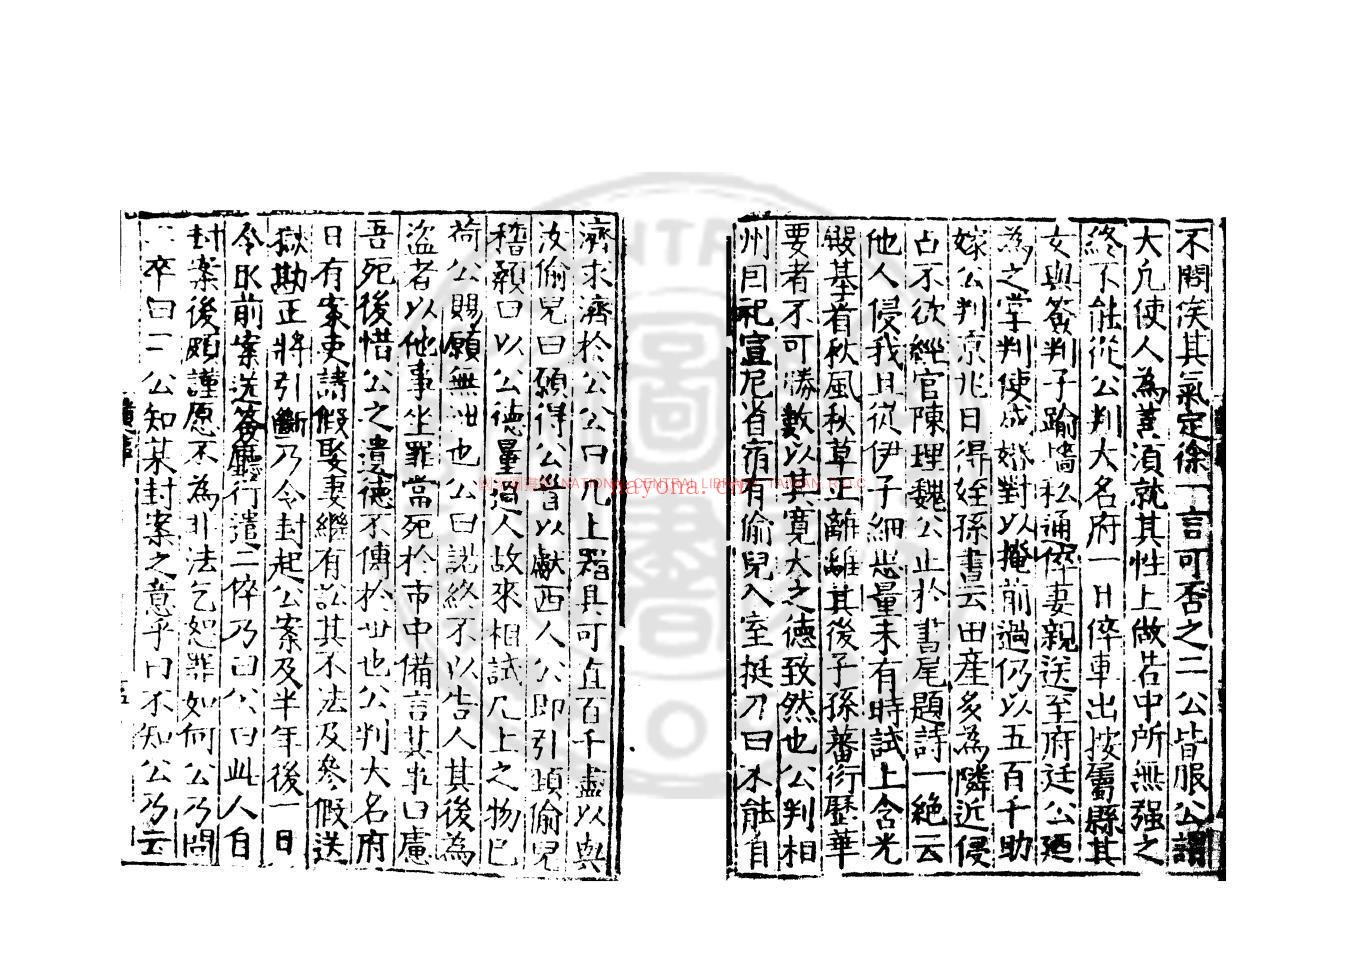 不閒俟其氣定徐一言可否之二公皆服公謂
大凡使人為善須就其性上做若中所無强之
終不能從公判大名府一日倅車出按屬縣其
女與簽判子踰牆私通倅妻親送至府廷公廼
為之掌判使成婚對以掩前過仍以五百千助
嫁公判京兆日得姪孫書云田産多為隣近侵
占不欲經官陳理魏公止於書尾題詩一絶云
他人侵我且從伊子細思量未有時試上含光
殿基看秋風秋草正離離其後子孫蕃衍歷華
要者不可勝數以其寛大之德致然也公判相
州因祀宣尼省宿有偷兒入室挺刀曰不能自
濟求濟於公公曰几上器具可直百千盡以與
汝偷兒曰願得公首以獻西人公即引頸偷兒
稽顙曰以公德量過人故來相試几上之物已
荷公賜願無泄也公曰諾終不以告人其後為
盜者以他事坐罪當死於市中備言其事曰慮
吾死後惜公之遺德不傳於世也公判大名府
日有案吏請假娶妻繼有訟其不法及參假送
獄勘正將引斷乃令封起公案及半年後一日
令取前案送簽廳行遣二倅乃曰公曰此人自
封案後頗謹愿不為非法乞恕罪如何公乃問
二卒曰二公知某封案之意乎曰不知公乃云